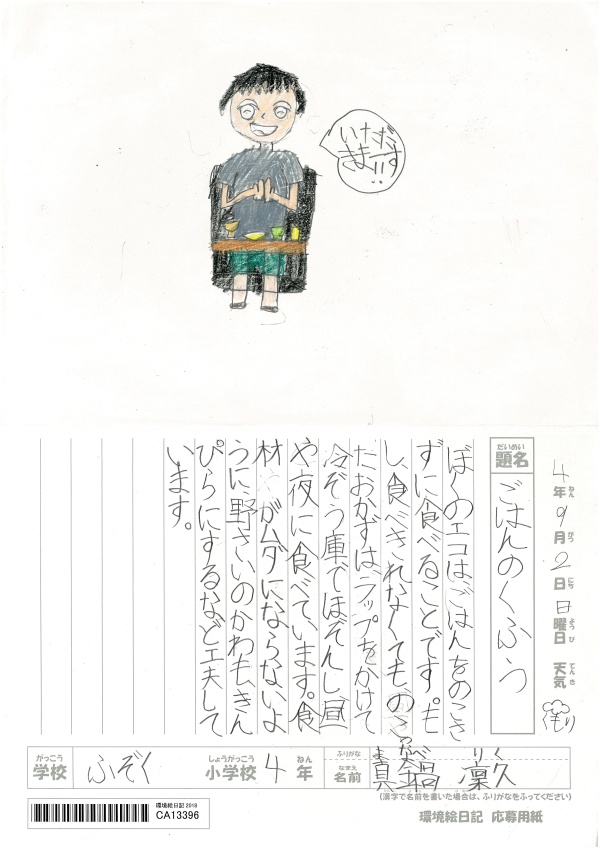 いただ
きまーす!!
4年9月2日日曜日 天気 くもり
ねん がつ にち ようび てんき
だいめい
題名 ごはんのくふう
ぼくのエコはごはんをのこさ
ずに食べることです。も
し食べきれなくても、のこっ
たおかずは、ラップをかけて
冷ぞう庫でほぞんし、昼
や夜に食べています。食
材がムダにならないよ
うに、野さいのかわも、きん
ぴらにするなど工夫して
います。
がっこう しょうがっこう ねん ふりがな
学校 ふぞく 小学校 4 年
なまえ りく
名前 凜久
(漢字で名前を書いた場合は、ふりがなをふってください)
環境絵日記 2018
CA13396
環境絵日記 応募用紙